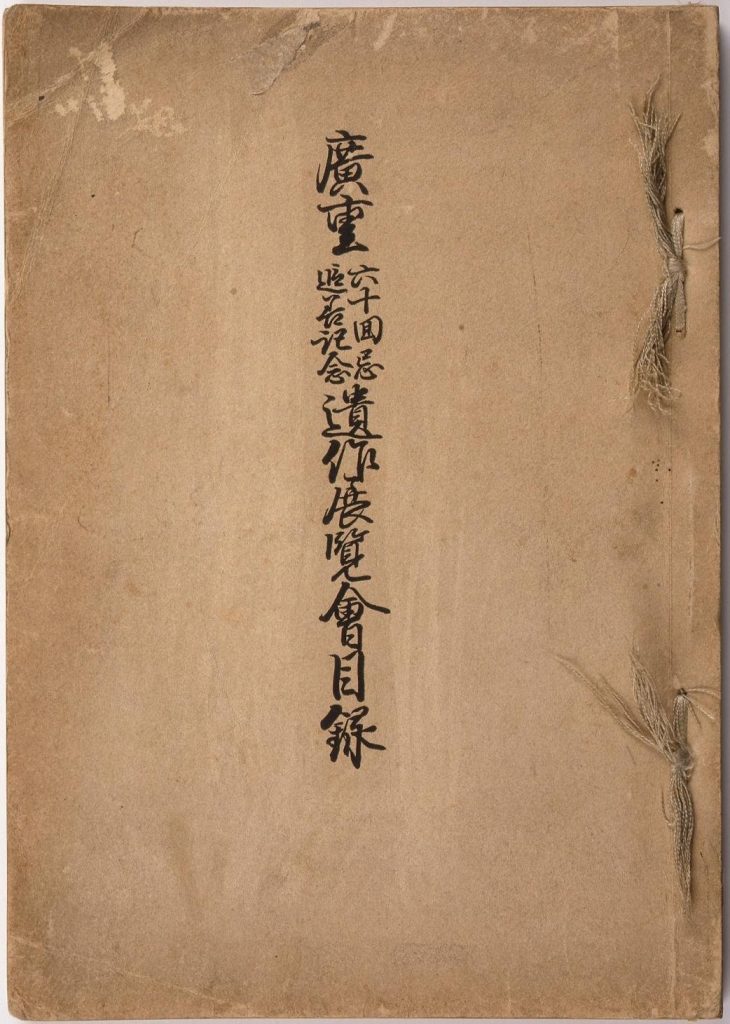 廣重
六十回忌
追善記念
遺作展覽會目録